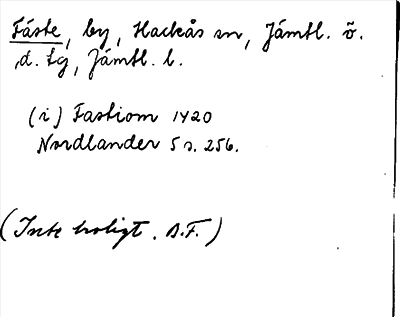 Fäste, by, Hackås sn, Jämtl. ö.
d. tg, Jämtl. l.
(i) Fastiom 1420
Nordlander 5 s. 256.
(Inte troligt. B.F.)